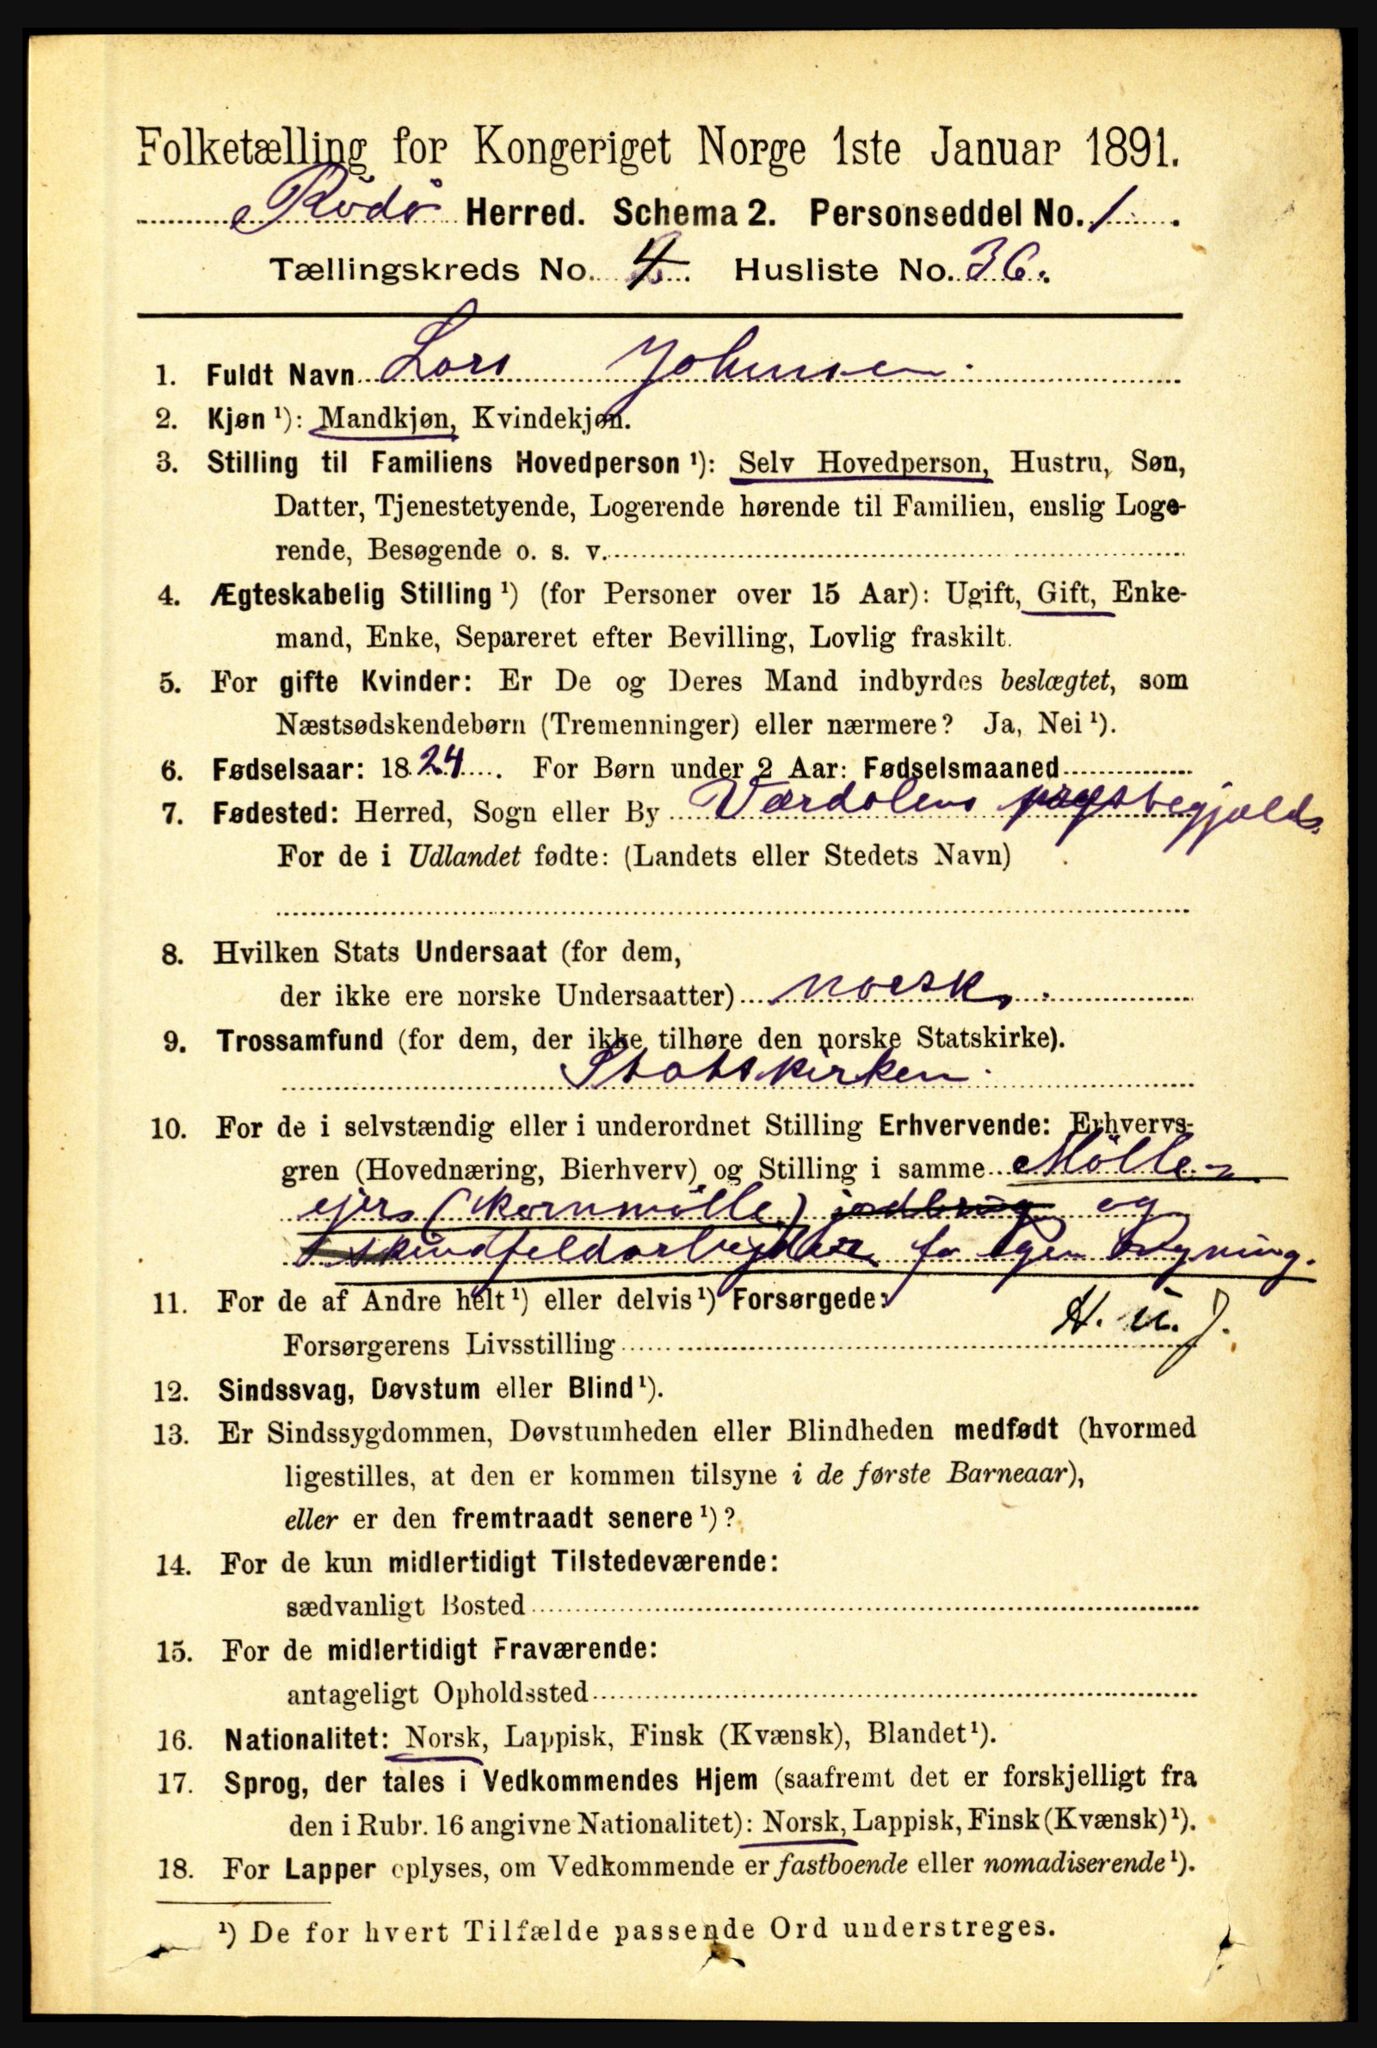 Folketælling for Kongeriget Norge 1ste Januar 1891.
Rødø Herred. Schema 2. Personseddel No. 1.
Tællingskreds No. 4. Husliste No. 36.
1. Fuldt Navn Lars Johnsen.
2. Kjøn ¹): Mandkjøn, Kvindekjøn.
3. Stilling til Familiens Hovedperson ¹): Selv Hovedperson, Hustru, Søn,
Datter, Tjenestetyende, Logerende hørende til Familien, enslig Loge-
rende, Besøgende o. s. v.
4. Ægteskabelig Stilling ¹) (for Personer over 15 Aar): Ugift, Gift, Enke-
mand, Enke, Separeret efter Bevilling, Lovlig fraskilt.
5. For gifte Kvinder: Er De og Deres Mand indbyrdes beslægtet, som
Næstsødskendebørn (Tremenninger) eller nærmere? Ja, Nei ¹).
6. Fødselsaar: 1824. For Børn under 2 Aar: Fødselsmaaned
7. Fødested: Herred, Sogn eller By Værdalens
For de i Udlandet fødte: (Landets eller Stedets Navn)
8. Hvilken Stats Undersaat (for dem,
der ikke ere norske Undersaatter) norsk.
9. Trossamfund (for dem, der ikke tilhøre den norske Statskirke).
Statskirken.
10. For de i selvstændig eller i underordnet Stilling Erhvervende: Erhvervs-
gren (Hovednæring, Bierhverv) og Stilling i samme Mølle-
ejer (Kornmølle) jodbrug og
skindfeldarbejder for egen Regning.
11. For de af Andre helt ¹) eller delvis ¹) Forsørgede:
H. u. J.
Forsørgerens Livsstilling
12. Sindssvag, Døvstum eller Blind ¹).
13. Er Sindssygdommen, Døvstumheden eller Blindheden medfødt (hvormed
ligestilles, at den er kommen tilsyne i de første Barneaar),
eller er den fremtraadt senere ¹)?
14. For de kun midlertidigt Tilstedeværende:
sædvanligt Bosted
15. For de midlertidigt Fraværende:
antageligt Opholdssted
16. Nationalitet: Norsk, Lappisk, Finsk (Kvænsk), Blandet ¹).
17. Sprog, der tales i Vedkommendes Hjem (saafremt det er forskjelligt fra
den i Rubr. 16 angivne Nationalitet): Norsk, Lappisk, Finsk (Kvænsk) ¹).
18. For Lapper oplyses, om Vedkommende er fastboende eller nomadiserende ¹).
¹) De for hvert Tilfælde passende Ord understreges.